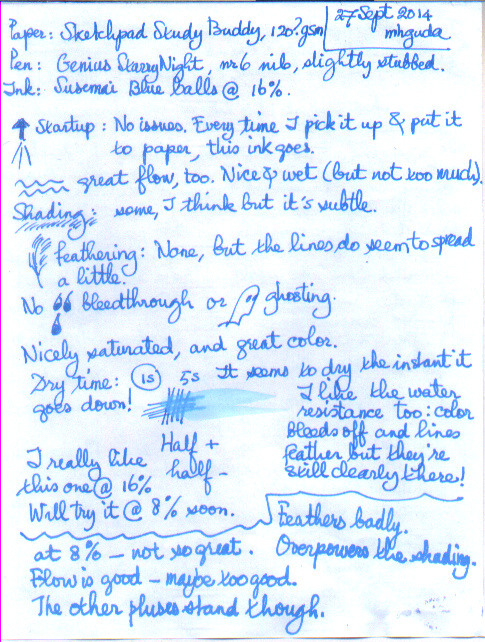 Paper: Sketchpad Study Buddy, 120? gsm
27 Sept 2014
mhguda
Pen: Genius Starry Night, nr 6 nib, slightly stubbed.
Ink: Susemai Blue balls @ 16%.
Startup: No issues. Every time I pick it up & put it
to paper, this ink goes.
great flow, too. Nice & wet (but not too much).
Shading: some, I think but it's subtle.
feathering: None, but the lines do seem to spread
a little.
No bleedthrough or ghosting.
Nicely saturated, and great color.
Dry time: 1s 5s It seems to dry the instant it
goes down!
I like the water
resistance too: color
bleeds off and lines
feather but they're
still clearly there!
Half +
half -
I really like
this one @ 16%
Will try it @ 8% soon.
at 8% – not so great.
Feathers badly.
Overpowers the shading.
Flow is good – maybe too good.
The other pluses stand though.